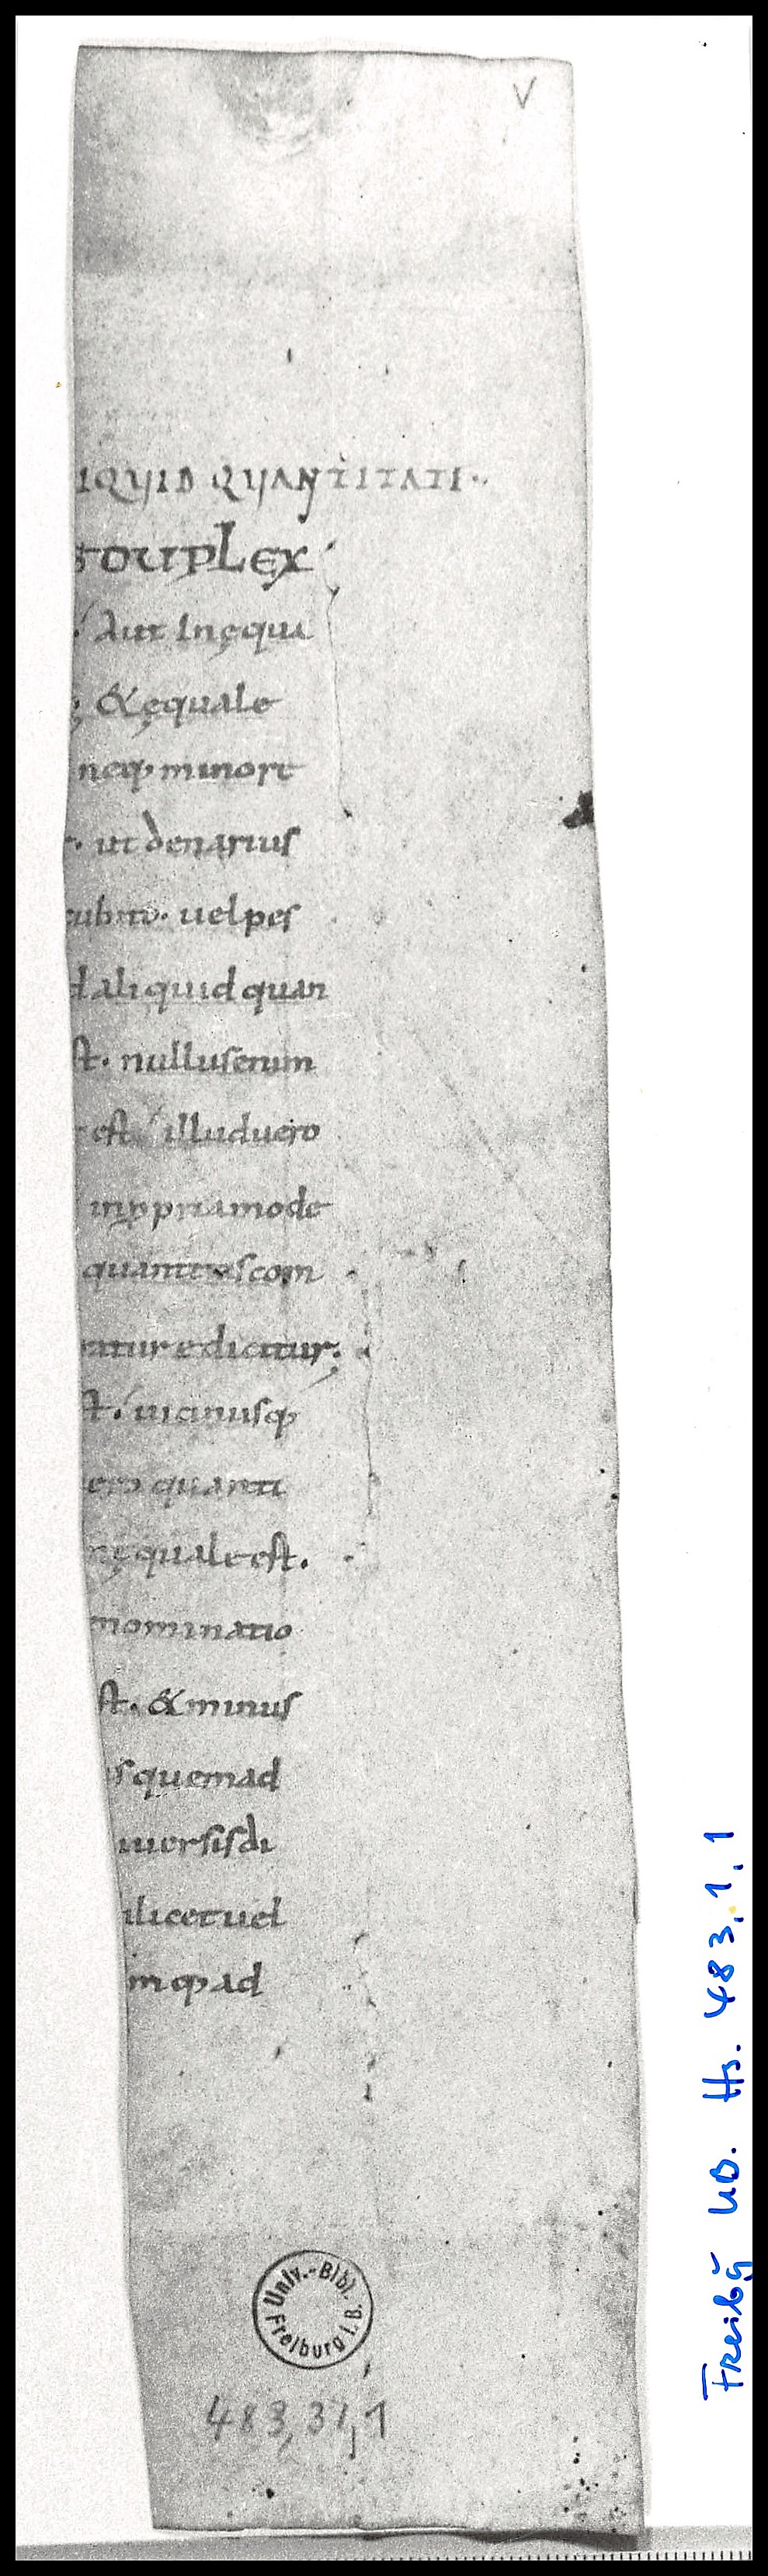 V
IQUID QUANTITATI..
DUPLEX
Aut inęqua
; &ęquale
neq; minore
. ut denarius
cubito. uel pes
d aliquid quan
st. nullus enim
est illud uero
in ppria mode
quantitas com
natur & dicitur;
st. uicinusq;
uero quanti
nęquale est.
nominatio
st. & minus
s quemad
iuersis di
ilicet uel
m q; ad
Univ.-Bibl. Freiburg i. B.
483,31,1
Freibg UB. Hs. 483,1,1